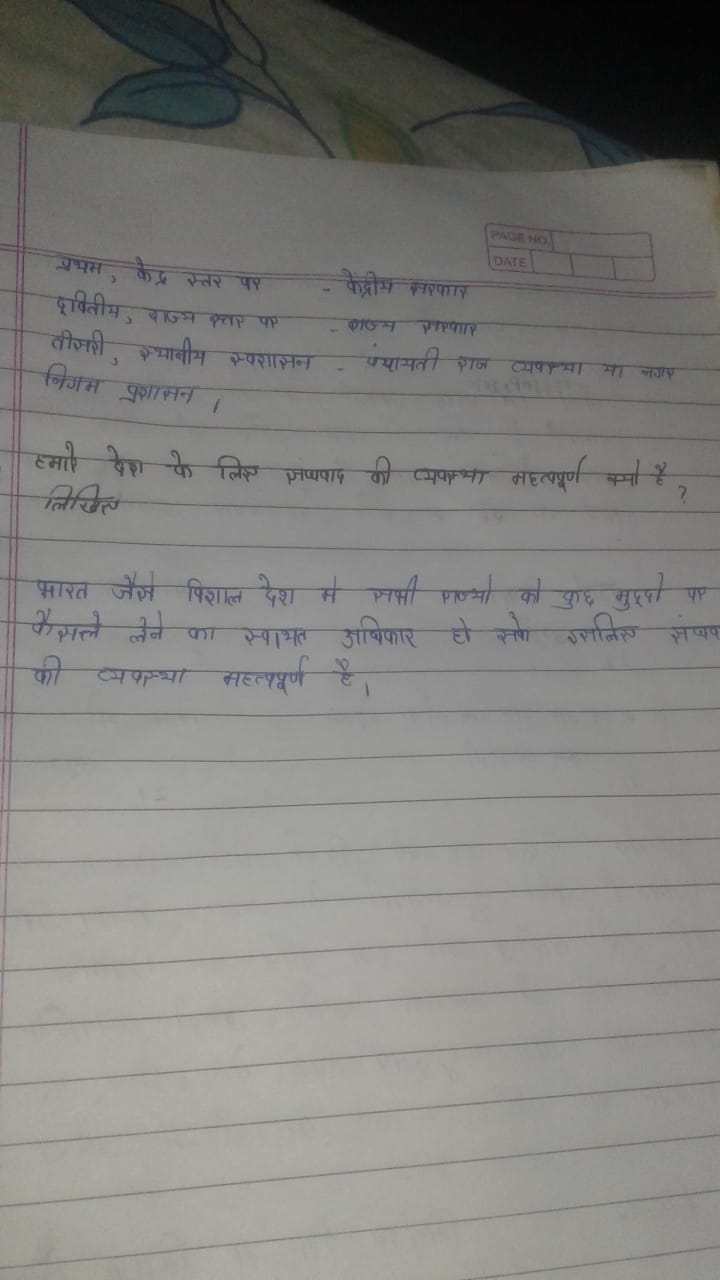 PAGE NO.
DATE
प्रथम, केंद्र स्तर पर - केंद्रीय सरकार
द्वितीय, राज्य स्तर पर - राज्य सरकार
तीसरी, स्थानीय स्वशासन - पंचायती राज व्यवस्था या नगर
निगम प्रशासन ।
हमारे देश के लिए संघवाद की व्यवस्था महत्वपूर्ण क्यों है ?
लिखिए
भारत जैसे विशाल देश मे सभी राज्यो को कुछ मुद्दो पर
फैसले लेने का स्वायत अधिकार हो सके इसलिए
की व्यवस्था महत्वपूर्ण है ।